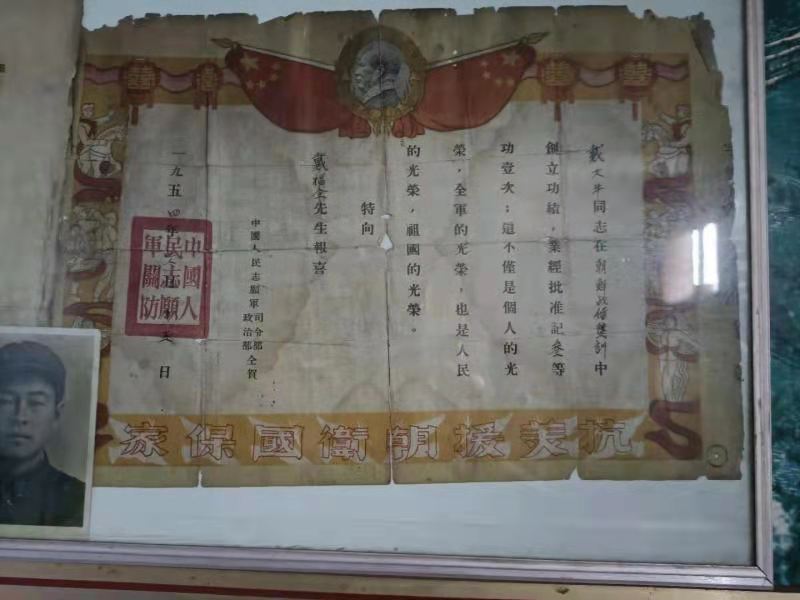 戴文年同志在朝鮮战俘變訓中
創立功績，業經批准記叁等
功壹次；這不僅是個人的光
榮，全軍的光榮，也是人民
的光榮，祖國的光榮。
特向
戴福全先生報喜
中國人民志願軍司令部政治部仝賀
一九五四年 日
中國人民志願軍關防
抗美援朝衛國保家